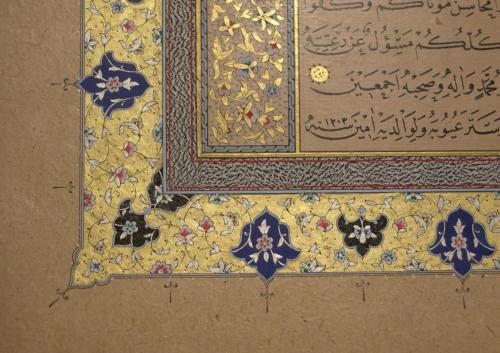 محاسن موتاكم وكفوا
كلكم مسؤول عن رعيته
محمد واله وصحبه اجمعين
ستر عيوبه ولوالديه امين سنه ١٢٠٣